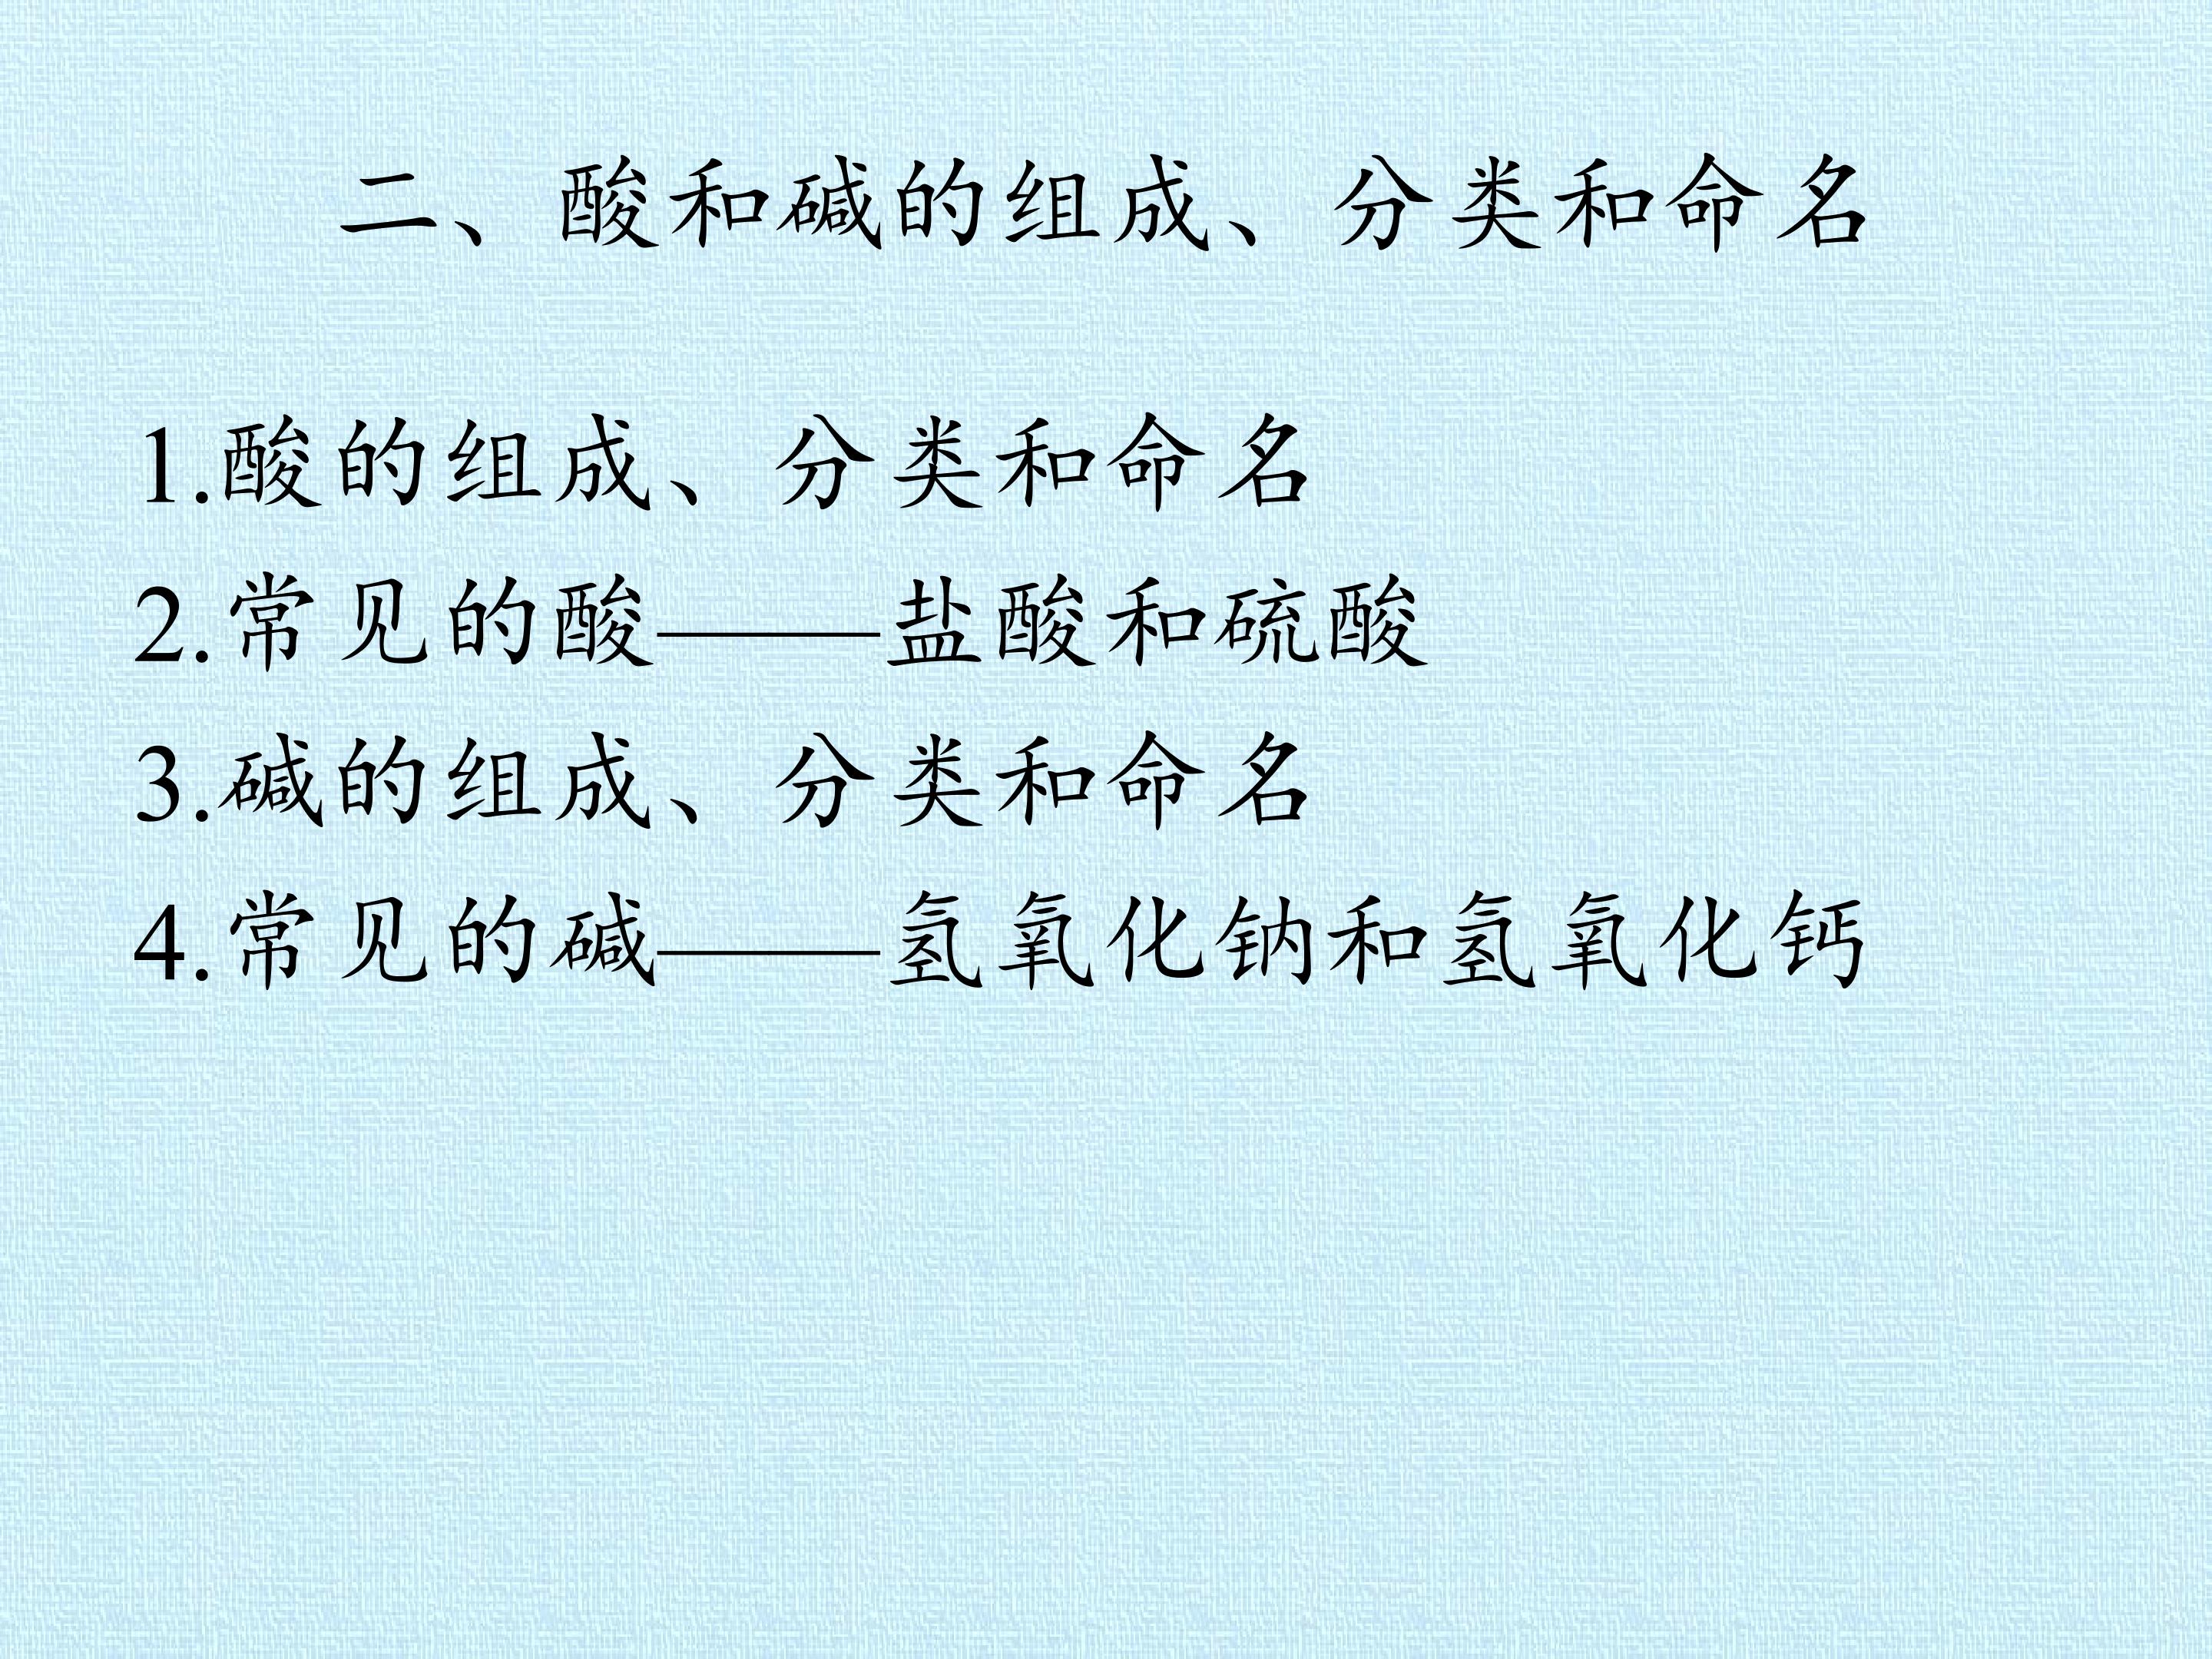 二、酸和碱的组成、分类和命名
1.酸的组成、分类和命名
2.常见的酸——盐酸和硫酸
3.碱的组成、分类和命名
4.常见的碱——氢氧化钠和氢氧化钙